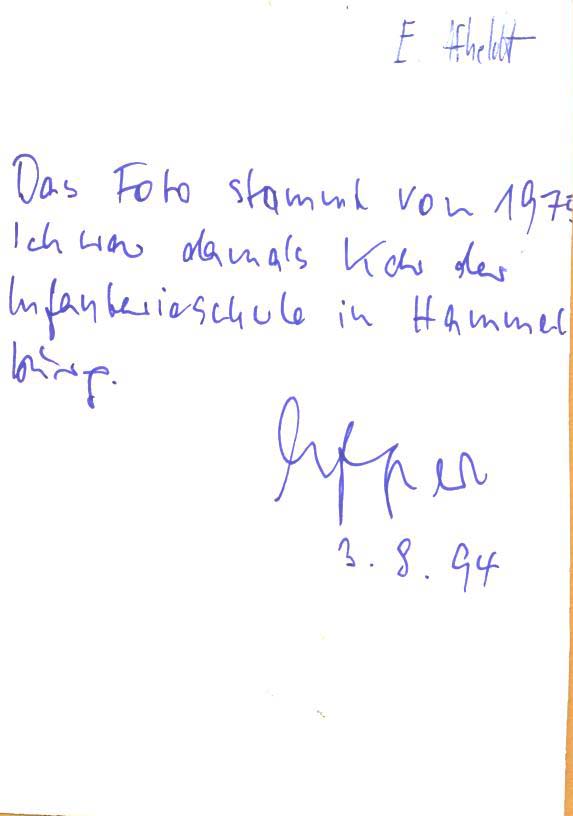 E. Afheldt
Das Foto stammt von 197
Ich war damals Kdr der
Infanterieschule in Hammel
burg.
3. 8. 94